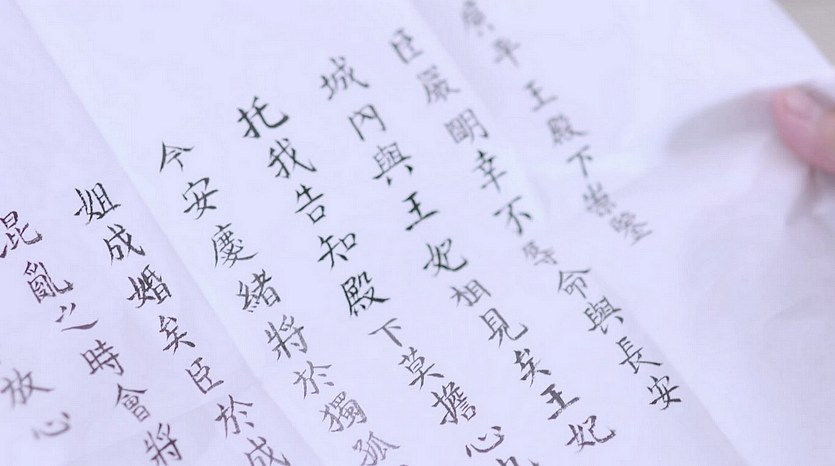 廣平王殿下崇鑒
臣嚴明幸不辱命與長安
城內與王妃相見矣王妃
托我告知殿下莫擔心
今安慶緒將於獨孤
姐成婚矣臣於成
混亂之時會將
放心